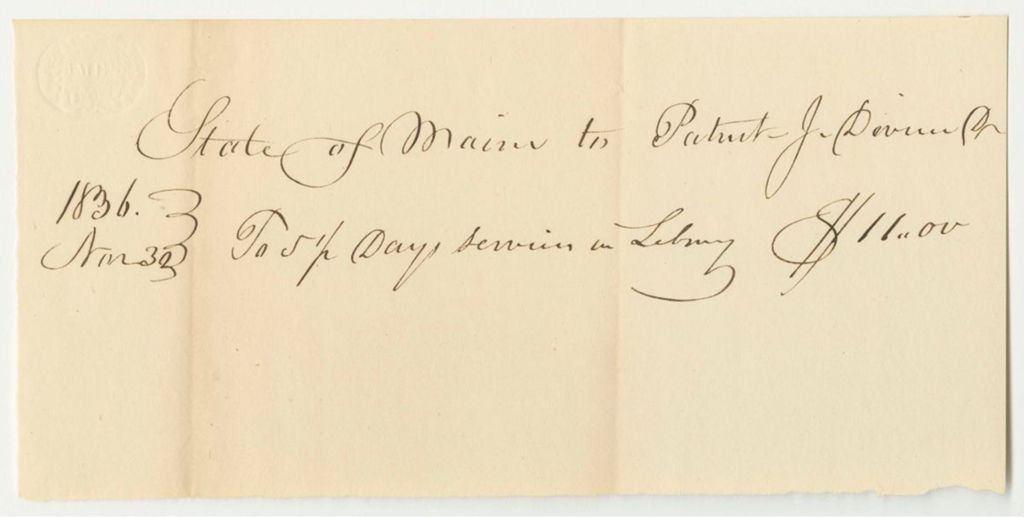 State of Maine to Patrick J. Devine Dr
1836.
Nov 30 To 5 1/2 Days services in Library $11.00